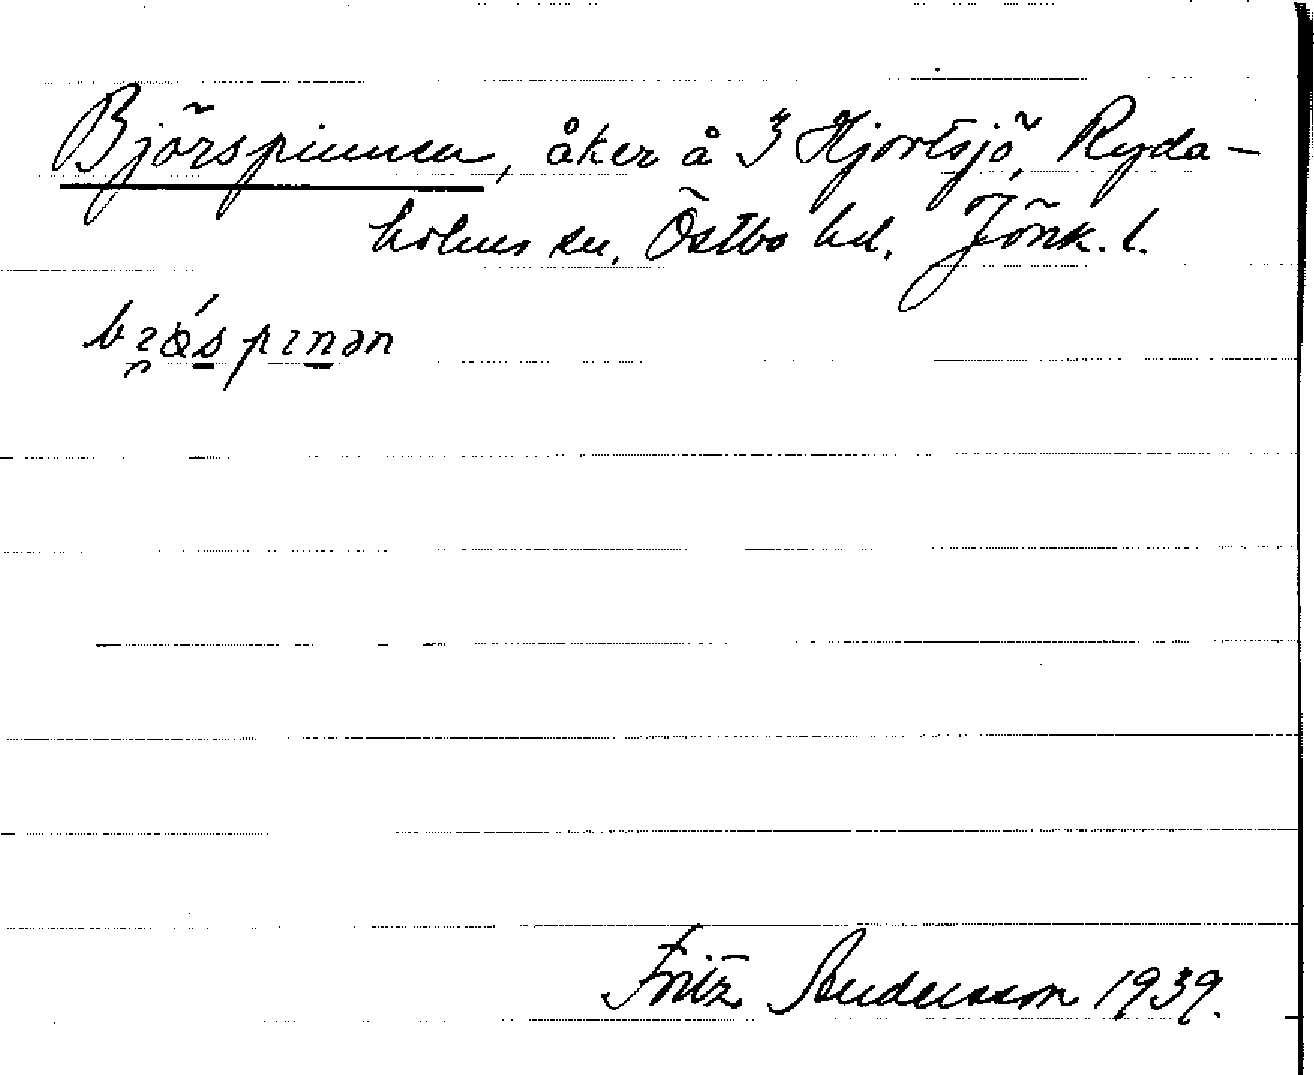 Björspinnen, åker å 3 Hjortsjö, Ryda-
holms sn, Östbo hd. Jönk. l.
bi̯ǿspɪnən
Fritz Andersson 1939.